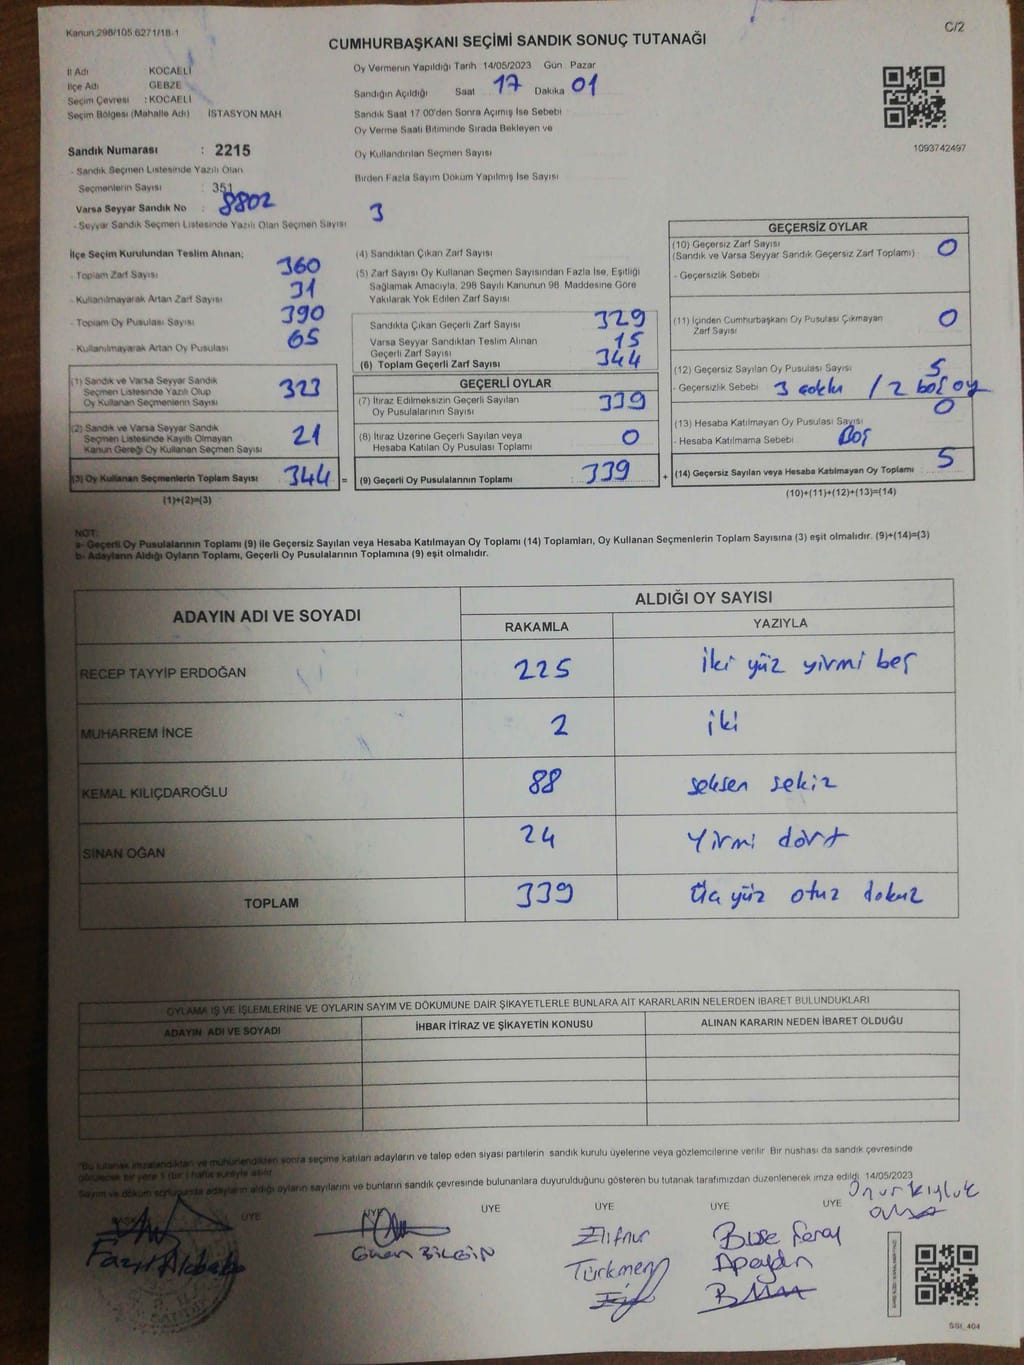 Kanun 298/105,6271/18-1
C/2
CUMHURBAŞKANI SEÇİMİ SANDIK SONUÇ TUTANAĞI
İl Adı KOCAELİ
İlçe Adı GEBZE
Seçim Çevresi : KOCAELİ
Seçim Bölgesi (Mahalle Adı) İSTASYON MAH
Sandık Numarası : 2215
- Sandık Seçmen Listesinde Yazılı Olan
Seçmenlerin Sayısı : 351
Varsa Seyyar Sandık No : 8802
- Seyyar Sandık Seçmen Listesinde Yazılı Olan Seçmen Sayısı 3
Oy Vermenin Yapıldığı Tarih 14/05/2023 Gün Pazar
Sandığın Açıldığı Saat 17 Dakika 01
Sandık Saat 17 00'den Sonra Açımış İse Sebebi
Oy Verme Saati Bitiminde Sırada Bekleyen ve
Oy Kullandırılan Seçmen Sayısı
Birden Fazla Sayım Döküm Yapılmış İse Sayısı
1093742497
İlçe Seçim Kurulundan Teslim Alınan;
- Toplam Zarf Sayısı 360
- Kullanılmayarak Artan Zarf Sayısı 31
- Toplam Oy Pusulası Sayısı 390
- Kullanılmayarak Artan Oy Pusulası 65
(1) Sandık ve Varsa Seyyar Sandık
Seçmen Listesinde Yazılı Olup
Oy Kullanan Seçmenlerin Sayısı 323
(2) Sandık ve Varsa Seyyar Sandık
Seçmen Listesinde Kayıtlı Olmayan
Kanun Gereği Oy Kullanan Seçmen Sayısı 21
(3) Oy Kullanan Seçmenlerin Toplam Sayısı 344 =
(1)+(2)=(3)
(4) Sandıktan Çıkan Zarf Sayısı
(5) Zarf Sayısı Oy Kullanan Seçmen Sayısından Fazla İse, Eşitliği
Sağlamak Amacıyla, 298 Sayılı Kanunun 98 Maddesine Göre
Yakılarak Yok Edilen Zarf Sayısı
Sandıkta Çıkan Geçerli Zarf Sayısı 329
Varsa Seyyar Sandıktan Teslim Alınan
Geçerli Zarf Sayısı 15
(6) Toplam Geçerli Zarf Sayısı 344
GEÇERLİ OYLAR
(7) İtiraz Edilmeksizin Geçerli Sayılan
Oy Pusulalarının Sayısı 339
(8) İtiraz Üzerine Geçerli Sayılan veya
Hesaba Katılan Oy Pusulası Toplamı 0
(9) Geçerli Oy Pusulalarının Toplamı 339 +
GEÇERSİZ OYLAR
(10) Geçersiz Zarf Sayısı 0
(Sandık ve Varsa Seyyar Sandık Geçersiz Zarf Toplamı)
- Geçersizlik Sebebi
(11) İçinden Cumhurbaşkanı Oy Pusulası Çıkmayan
Zarf Sayısı 0
(12) Geçersiz Sayılan Oy Pusulası Sayısı 5
- Geçersizlik Sebebi 3 çoklu / 2 boş oy
(13) Hesaba Katılmayan Oy Pusulası Sayısı 0
- Hesaba Katılmama Sebebi Boş
(14) Geçersiz Sayılan veya Hesaba Katılmayan Oy Toplamı 5
(10)+(11)+(12)+(13)=(14)
NOT:
a- Geçerli Oy Pusulalarının Toplamı (9) ile Geçersiz Sayılan veya Hesaba Katılmayan Oy Toplamı (14) Toplamları, Oy Kullanan Seçmenlerin Toplam Sayısına (3) eşit olmalıdır. (9)+(14)=(3)
b- Adayların Aldığı Oyların Toplamı, Geçerli Oy Pusulalarının Toplamına (9) eşit olmalıdır.
ADAYIN ADI VE SOYADI
ALDIĞI OY SAYISI
RAKAMLA YAZIYLA
RECEP TAYYİP ERDOĞAN 225 iki yüz yirmi beş
MUHARREM İNCE 2 iki
KEMAL KILIÇDAROĞLU 88 seksen sekiz
SİNAN OĞAN 24 Yirmi dört
TOPLAM 339 Üç yüz otuz dokuz
OYLAMA İŞ VE İŞLEMLERİNE VE OYLARIN SAYIM VE DÖKÜMÜNE DAİR ŞİKAYETLERLE BUNLARA AİT KARARLARIN NELERDEN İBARET BULUNDUKLARI
ADAYIN ADI VE SOYADI İHBAR İTİRAZ VE ŞİKAYETİN KONUSU ALINAN KARARIN NEDEN İBARET OLDUĞU
*Bu tutanak imzalandıktan ve mühürlendikten sonra seçime katılan adayların ve talep eden siyasi partilerin sandık kurulu üyelerine veya gözlemcilerine verilir Bir nushası da sandık çevresinde
görülecek bir yere 1 (bir) hafta süreyle asılır
Sayım ve döküm sonucunda adayların aldığı oyların sayılarını ve bunların sandık çevresinde bulunanlara duyurulduğunu gösteren bu tutanak tarafımızdan düzenlenerek imza edildi 14/05/2023
ÜYE ÜYE ÜYE ÜYE ÜYE ÜYE
Onur kıyluk
Güven BİLGİN
Elifnur
Türkmen
Buse Feray
Apaydın
SSI_404